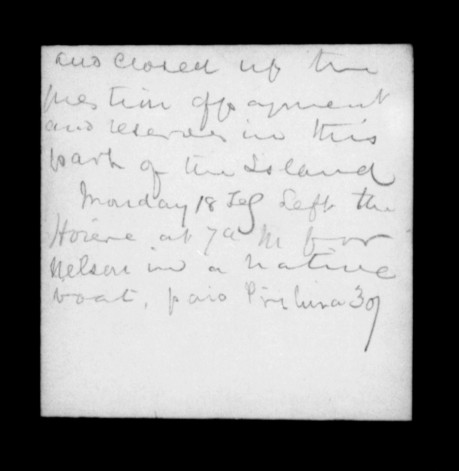 and closed up the
question of payment
and reserves in this
part of the Island
Monday 18 Feb Left the
Hoiere at 7 a M for
Nelson in a native
boat, paid 30/